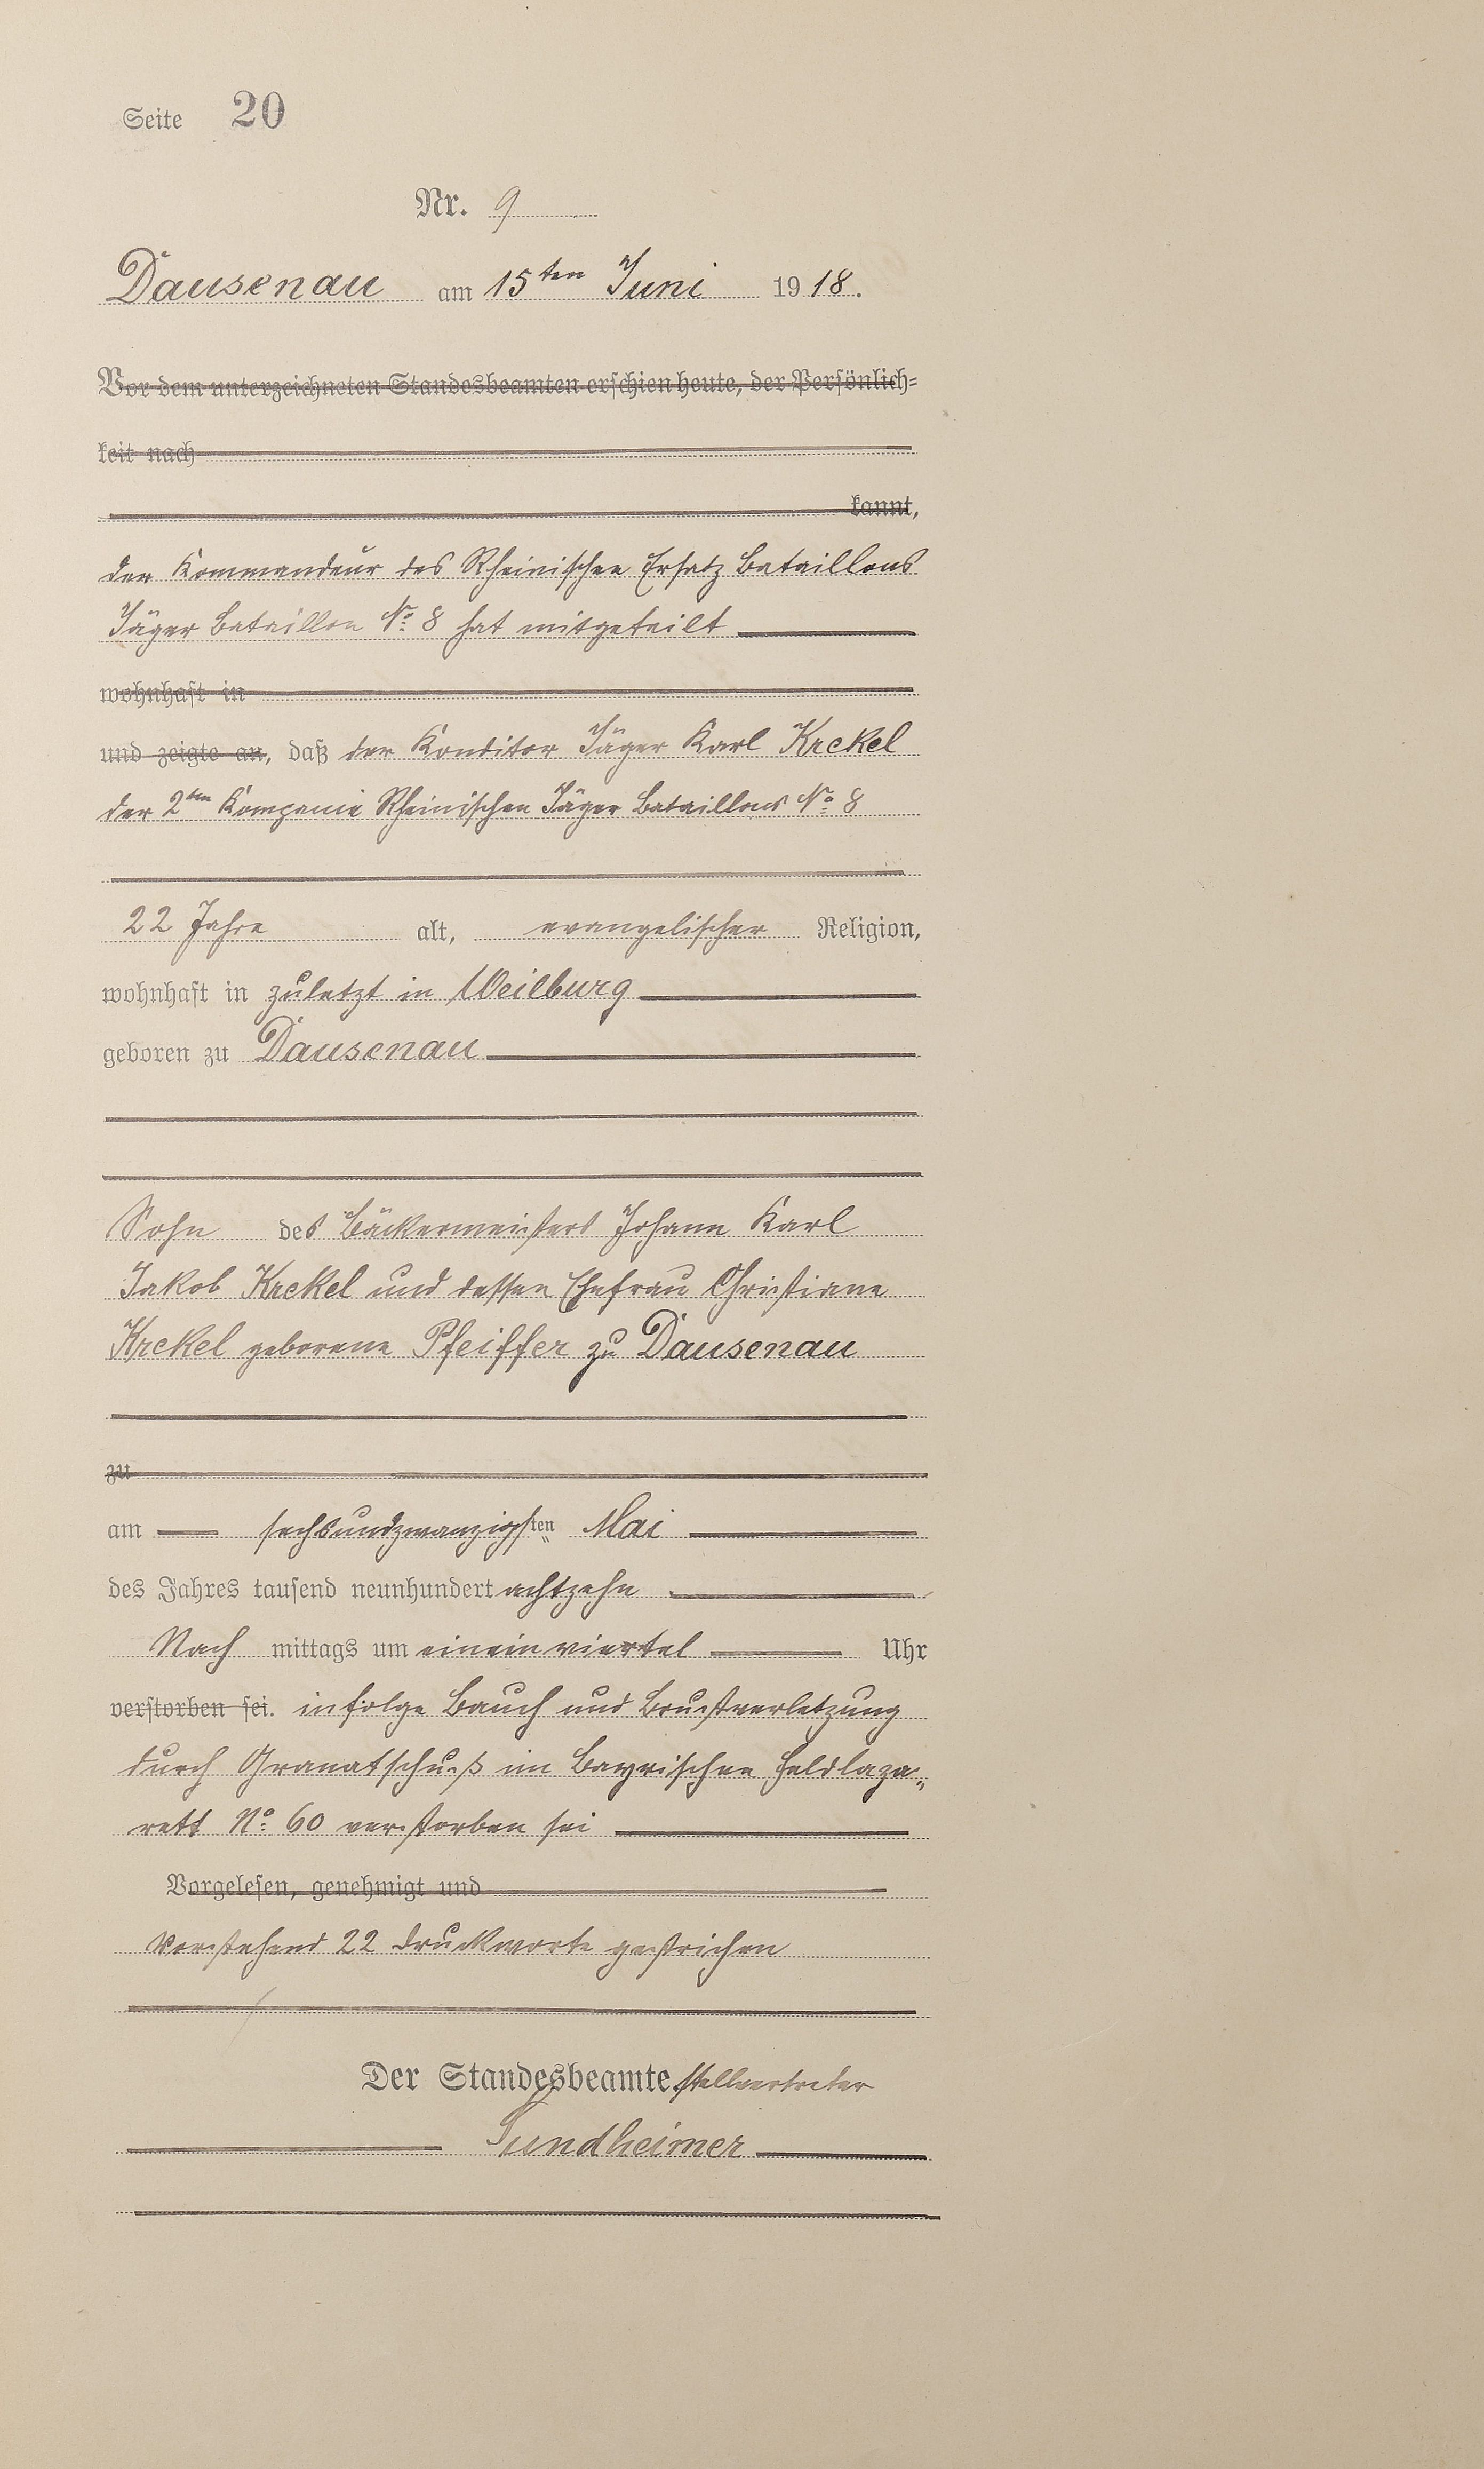 Seite 20
Nr. 9
Dausenau am 15ten Juni 1918.
Vor dem unterzeichneten Standesbeamten erschien heute, der Persönlich-
keit nach
kannt,
der Kommandeur des Rheinischen Ersatz Bataillons
Jäger Bataillon No. 8 hat mitgeteilt
wohnhaft in
und zeigte an, daß der Konditor Jäger Karl Krekel
der 2ten Kompanie Rheinischen Jäger Bataillons No. 8
22 Jahre alt, evangelischer Religion,
wohnhaft in zuletzt in Weilburg
geboren zu Dausenau
Sohn des Bäckermeisters Johann Karl
Jakob Krekel und dessen Ehefrau Christiane
Krekel geborene Pfeiffer zu Dausenau
zu
am sechsundzwanzigsten Mai
des Jahres tausend neunhundert achtzehn
Nach mittags um eineinviertel Uhr
verstorben sei. infolge Bauch und Brustverletzung
durch Granatschuß im Bayrischen Feldlaza-
rett No. 60 verstorben sei
Vorgelesen, genehmigt und
Vorstehend 22 Druckworte gestrichen
Der Standesbeamte. Stellvertreter
Sundheimer